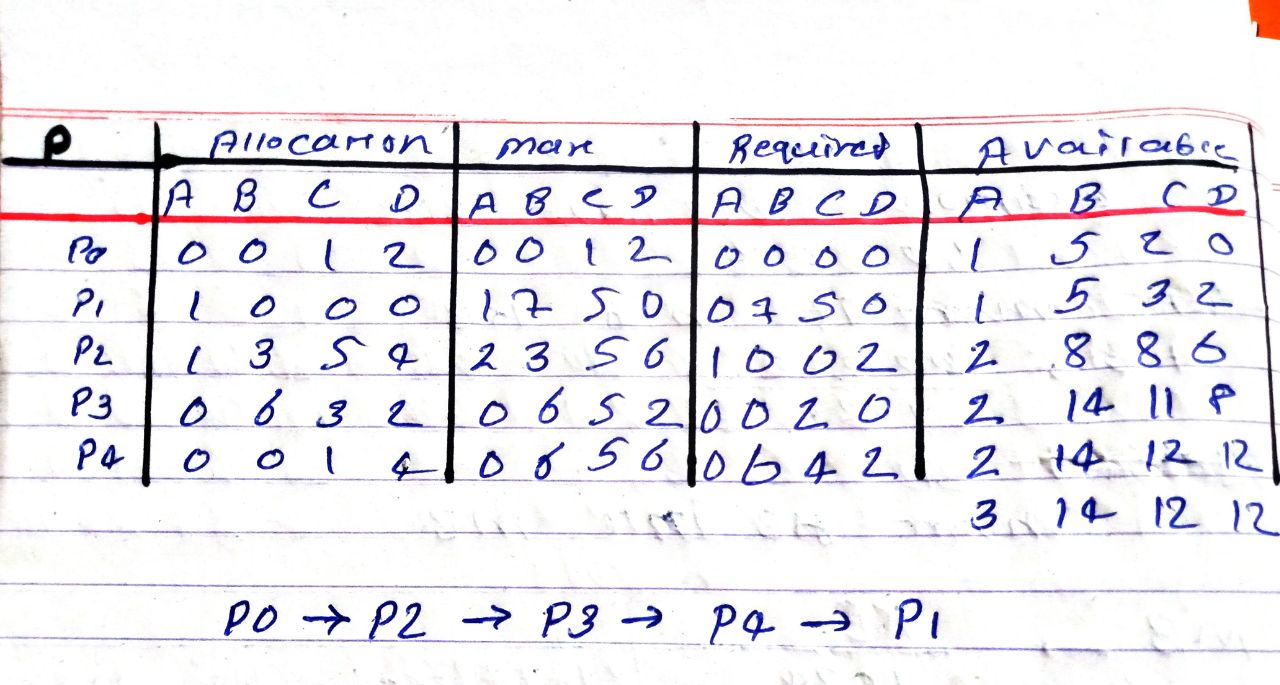 P Allocation Max Required Available
A B C D A B C D A B C D A B C D
P0 0 0 1 2 0 0 1 2 0 0 0 0 1 5 2 0
P1 1 0 0 0 1 7 5 0 0 7 5 0 1 5 3 2
P2 1 3 5 4 2 3 5 6 1 0 0 2 2 8 8 6
P3 0 6 3 2 0 6 5 2 0 0 2 0 2 14 11 8
P4 0 0 1 4 0 6 5 6 0 6 4 2 2 14 12 12
3 14 12 12
P0 → P2 → P3 → P4 → P1